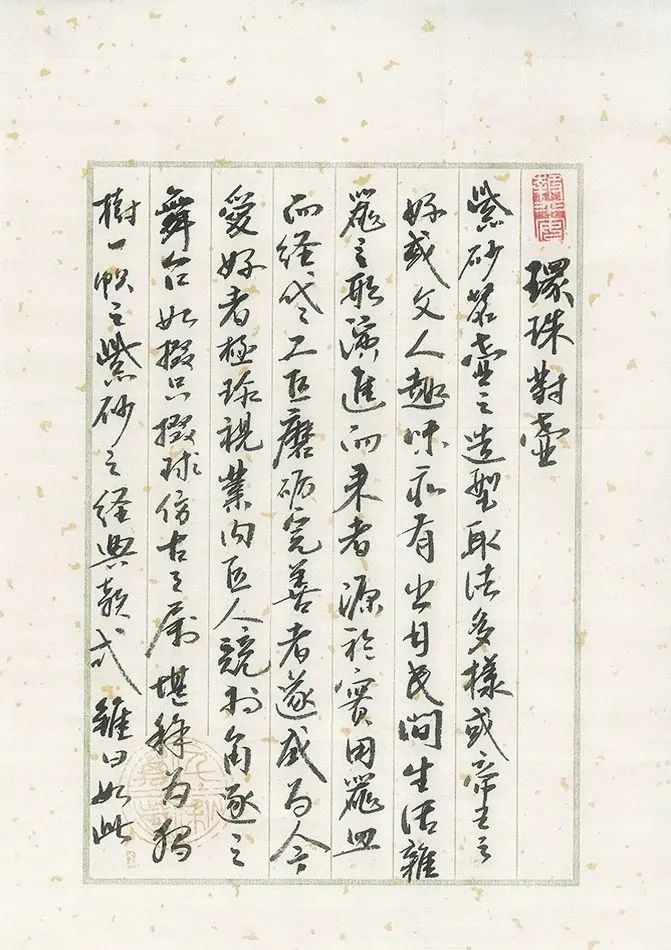 環珠對壺
紫砂茗壺之造型取法多樣或帝王之
好或文人趣味亦有出自民間生活雜
器之形演進而来者源於實用器皿
而经代代工匠磨砺完善者遂成为今
愛好者極珍視業内匠人競相角逐之
舞台如掇只掇球仿古之属堪稱为獨
樹一幟之紫砂之经典款式雖曰如此